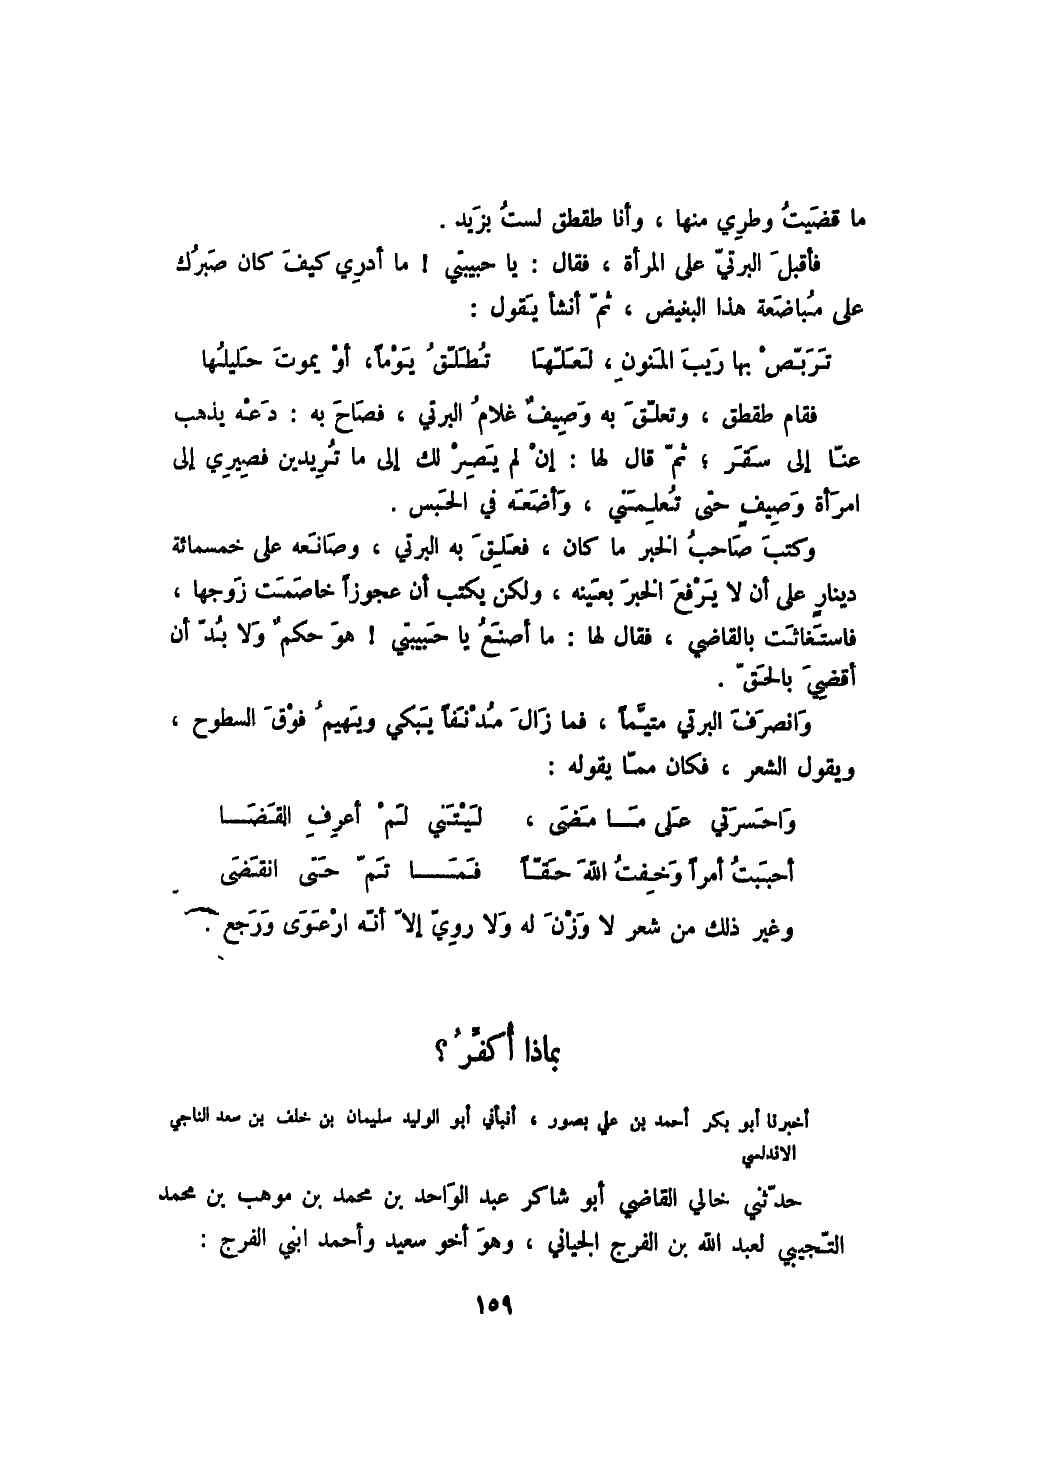 ما قضَيتُ وطرِي منها ، وأنا طقطق لستُ بزَيد .
فأقبلَ البرتيّ على المرأة ، فقال : يا حبيبتي ! ما أدرِي كيفَ كان صَبرُك
على مُباضَعة هذا البغيض ، ثمّ أنشأ يَقول :
تَرَبّصْ بها رَيبَ المَنونِ ، لَعَلّهَا تُطَلّقُ يَوْماً، أوْ يموتَ حَليلُها
فقام طقطق ، وتعلّقَ به وَصِيفٌ غلامُ البرتي ، فصَاحَ به : دَعْه يذهب
عنّا إلى سَقَرَ ؛ ثمّ قال لها : إنْ لم يَصِرْ لك إلى ما تُرِيدين فصِيرِي إلى
امرَأة وَصِيفٍ حتى تُعلِمَني ، وَأضَعَه في الحَبس .
وكتبَ صَاحبُ الخبر ما كان ، فعَلِقَ به البرتي ، وصَانَعه على خمسمائة
دينارٍ على أن لا يَرْفعَ الخبرَ بعَينه ، ولكن يكتب أن عجوزاً خاصَمَت زَوجها ،
فاستَغاثَت بالقاضي ، فقال لها : ما أصنَعُ يا حَبيبتي ! هوَ حكمٌ وَلا بُدّ أن
أقضيَ بالحَقّ .
وَانصرَفَ البرتي متيَّماً ، فما زَالَ مُدْنَفاً يَبكي ويَهيمُ فوْقَ السطوح ،
ويقول الشعر ، فكان ممّا يقوله :
وَاحَسرَتي عَلى مَا مَضَى ، لَيْتَني لَمْ أعرِفِ القَضَا
أحبَبتُ أمراً وَخِفتُ اللهَ حَقّاً فَمَا تَمّ حَتّى انقَضَى
وغير ذلك من شعر لا وَزْنَ له وَلا رويّ إلاّ أنّه ارْعَوَى وَرَجع .
بماذا أُكفّرُ ؟
أخبرنا أبو بكر أحمد بن علي بصور ، أنبأني أبو الوليد سليمان بن خلف بن سعد الناجي
الاندلسي
حدّثني خالي القاضي أبو شاكر عبد الوَاحد بن محمد بن موهب بن محمد
التّجيبي لعبد الله بن الفرج الجياني ، وهوَ أخو سعيد وأحمد ابني الفرج :
١٥٩